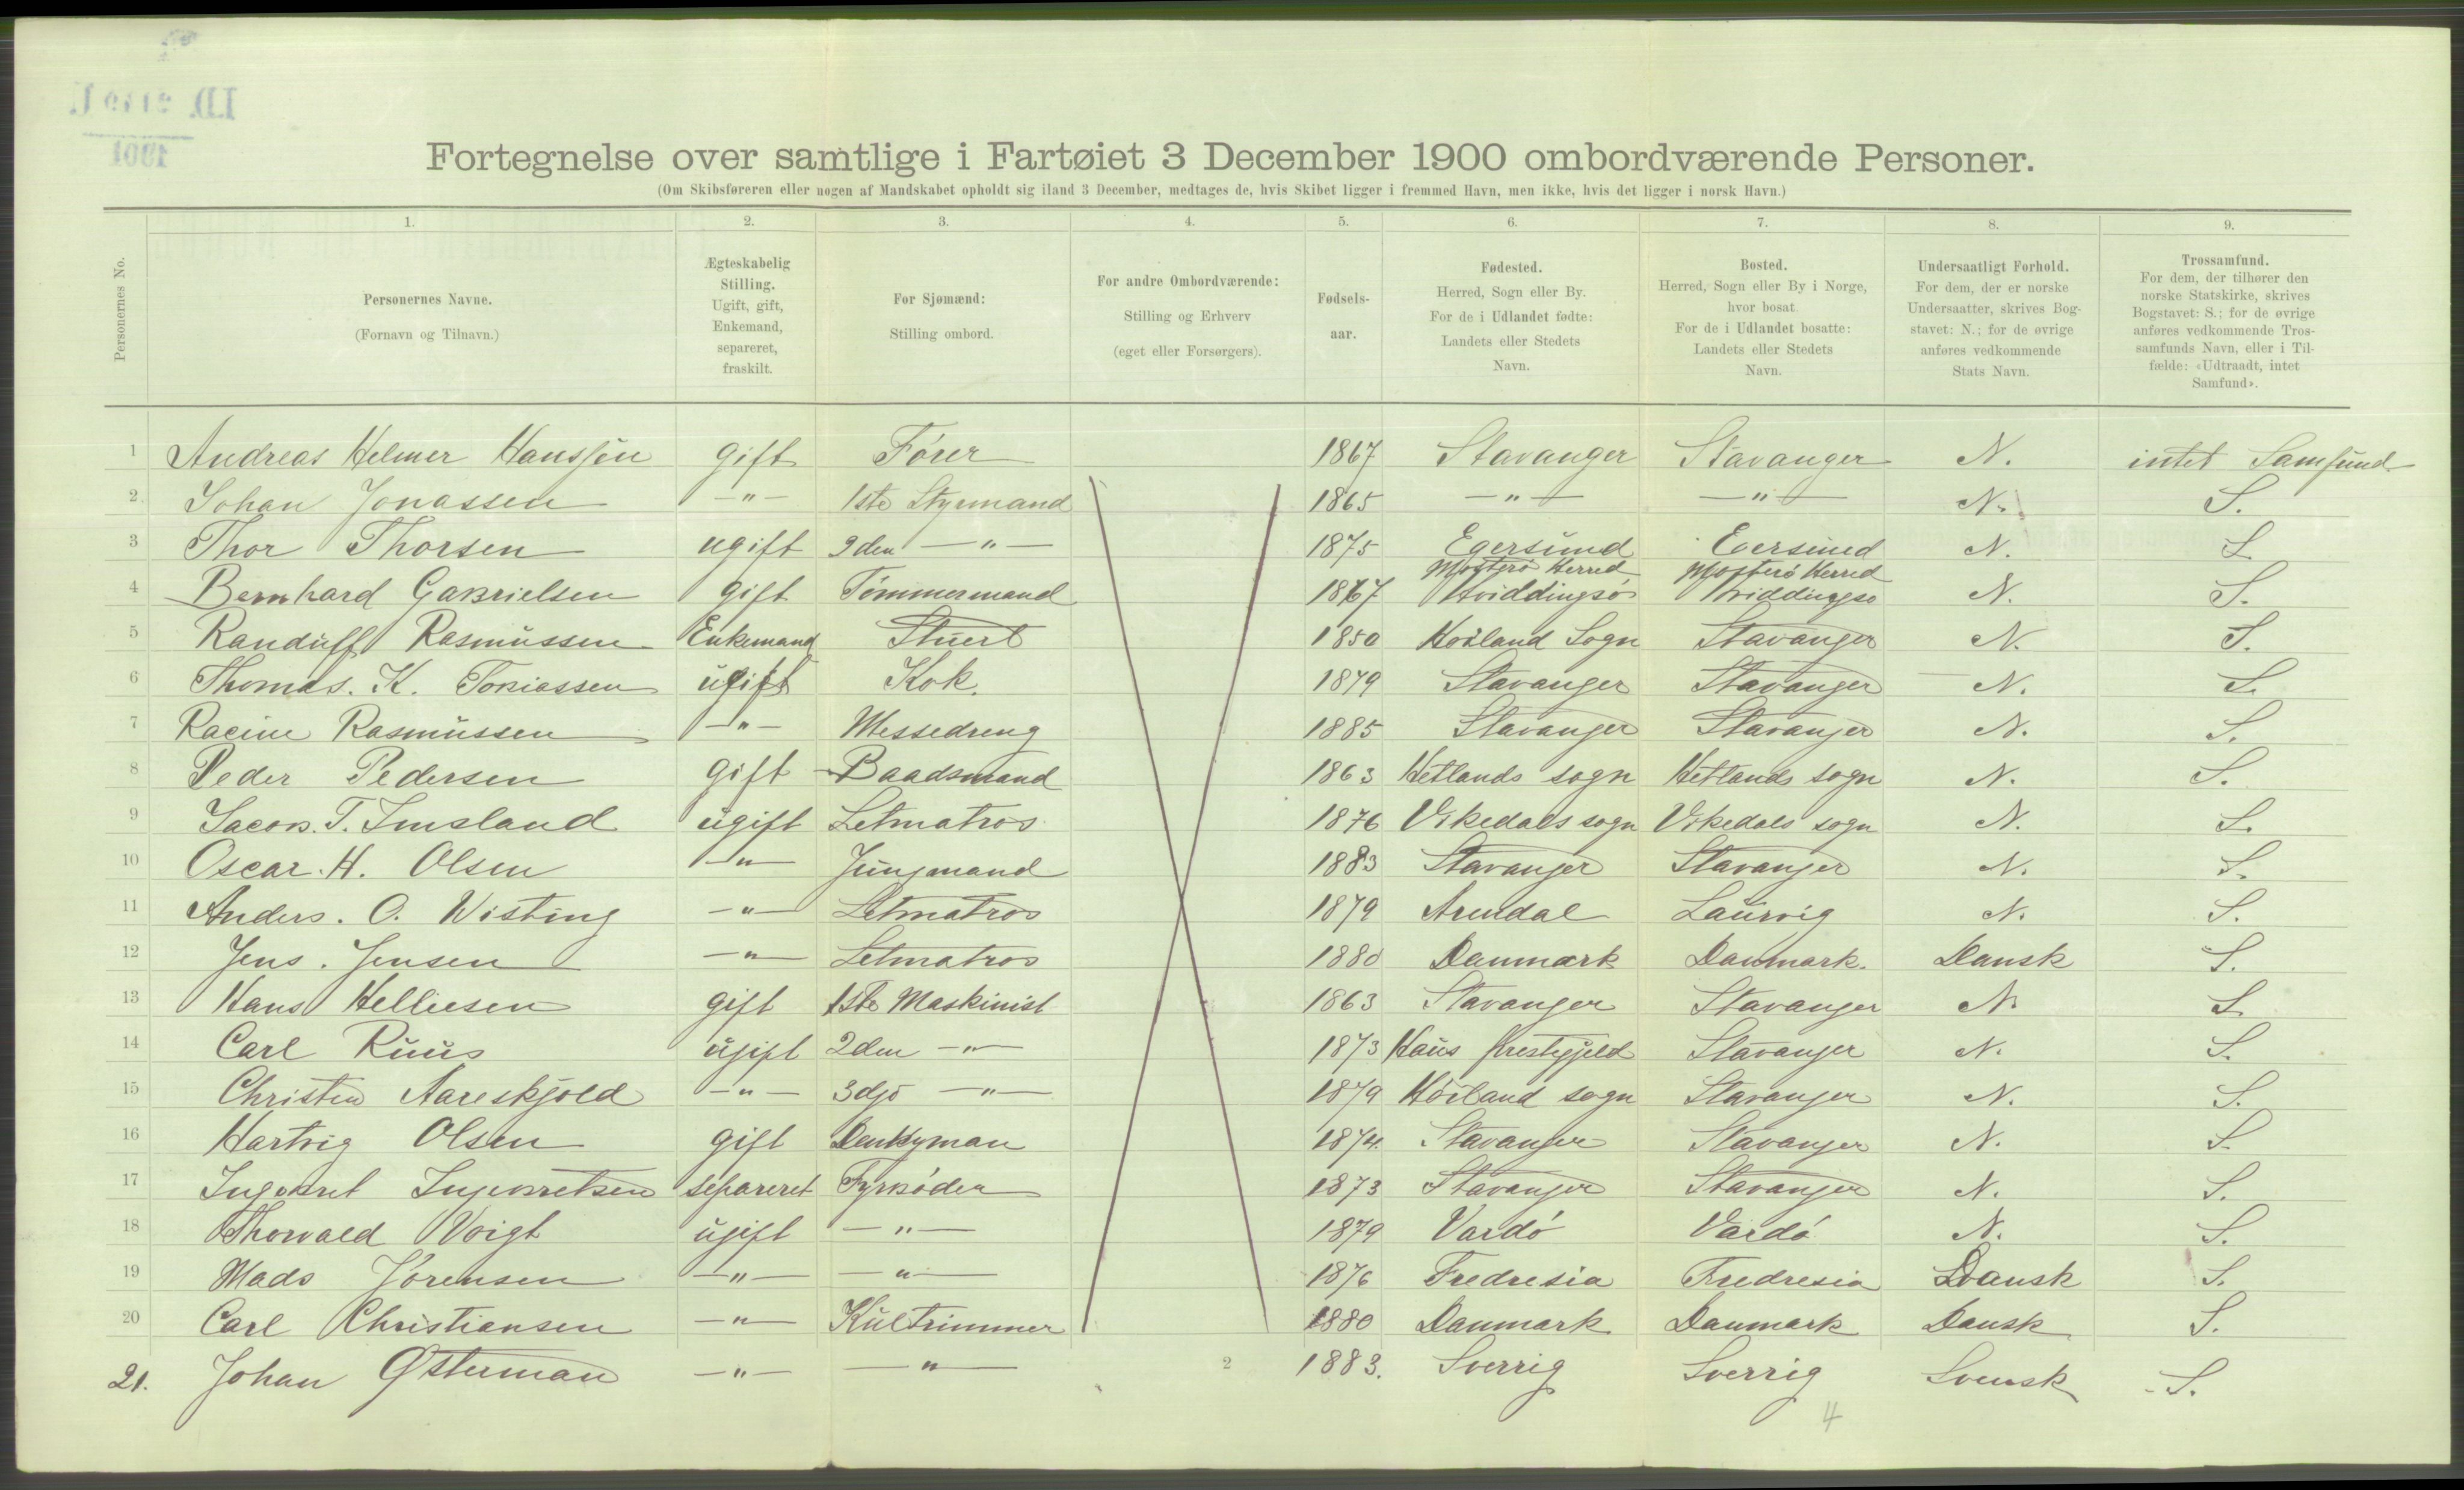 Fortegnelse over samtlige i Fartøiet 3 December 1900 ombordværende Personer.
(Om Skibsføreren eller nogen af Mandskabet opholdt sig iland 3 December, medtages de, hvis Skibet ligger i fremmed Havn, men ikke, hvis det ligger i norsk Havn.)
Personernes No.
1. 2. 3. 4. 5. 6. 7. 8. 9.
Personernes Navne.
(Fornavn og Tilnavn.)
Ægteskabelig
Stilling.
Ugift, gift,
Enkemand,
separeret,
fraskilt.
For Sjømænd:
Stilling ombord.
For andre Ombordværende:
Stilling og Erhverv
(eget eller Forsørgers).
Fødsels-
aar.
Fødested.
Herred, Sogn eller By.
For de i Udlandet fødte:
Landets eller Stedets
Navn.
Bosted.
Herred, Sogn eller By i Norge,
hvor bosat.
For de i Udlandet bosatte:
Landets eller Stedets
Navn.
Undersaatligt Forhold.
For dem, der er norske
Undersaatter, skrives Bog-
stavet: N.; for de øvrige
anføres vedkommende
Stats Navn.
Trossamfund.
For dem, der tilhører den
norske Statskirke, skrives
Bogstavet: S.; for de øvrige
anføres vedkommende Tros-
samfunds Navn, eller i Til-
fælde: «Udtraadt, intet
Samfund».
1 Andreas Helmer Hanssen gift Förer 1867 Stavanger Stavanger N. intet Samfund
2 Johan Jonassen — " — 1ste Styrmand 1865 — " — — " — N. S.
3 Thor Thorsen ugift 2den — " — 1875 Egersund Egersund N. S.
Mosterö Herred Mosterö Herred
4 Bernhard Gabrielsen gift Tömmermand 1867 Hviddingsö Hviddingsö N. S.
5 Randulff Rasmussen Enkemand Stuert 1850 Hoiland Sogn Stavanger N. S.
6 Thomas. K. Tobiassen ugift Kok. 1879 Stavanger Stavanger N. S.
7 Racine Rasmussen — " — Messedreng 1885 Stavanger Stavanger N. S.
8 Peder Pedersen gift Baadsmand 1863 Hetlands sogn Hetlands sogn N. S.
9 Jacob. T. Imsland ugift Letmatros 1876 Vikedals sogn Vikedals sogn N. S.
10 Oscar. H. Olsen — " — Jungmand 1883 Stavanger Stavanger N. S.
11 Anders. O. Wisting — " — Letmatros 1879 Arendal Laurvig N. S.
12 Jens. Jensen — " — Letmatros 1880 Danmark Danmark. Dansk S.
13 Hans Helliesen gift 1ste Maskinist 1863 Stavanger Stavanger N. S.
14 Carl Ruus ugift 2den — " — 1873 Haus prestegjeld Stavanger N. S.
15 Christen Aareskjold — " — 3dje — " — 1879 Höiland sogn Stavanger N. S.
16 Hartvig Olsen gift Denkyman 1874. Stavanger Stavanger N. S.
17 Ingebret Ingebretsen separeret Fyrböder 1873 Stavanger Stavanger N. S.
18 Thorvald Voigt ugift — " — 1879 Vardö Vardö N. S.
19 Mads Jörensen — " — — " — 1876 Fredresia Fredresia Dansk S.
20 Carl Christiansen — " — Kultrimmer 1880 Danmark Danmark Dansk S.
21. Johan Østerman — " — — " — 2 1883. Sverrig Sverrig Svensk S.
4